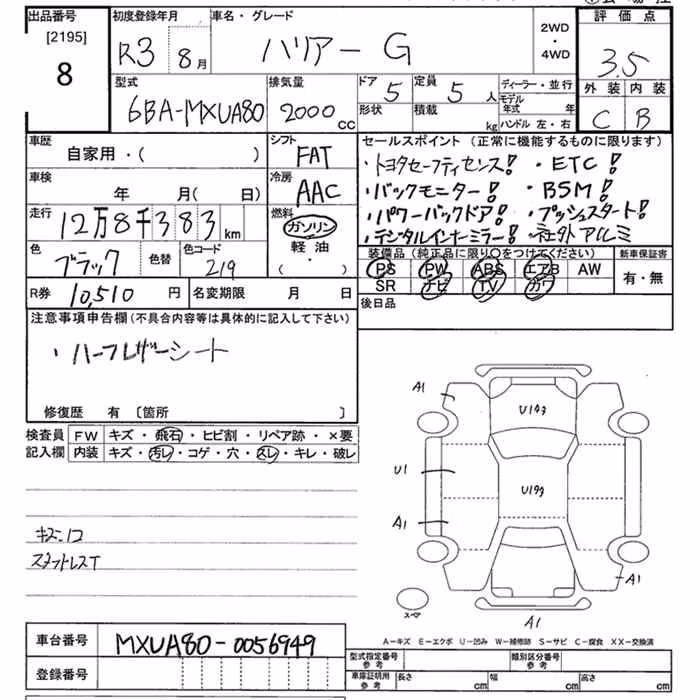 出品番号
[2195]
8
初度登録年月
R3 8月
車名・グレード
ハリアー G
2WD
・
4WD
評価点
3.5
外装 内装
C B
型式
6BA-MXUA80
排気量
2000 cc
ドア 5
定員 5 人
形状
積載 kg
ディーラー・並行
モデル年式 年
ハンドル 左・右
車歴
自家用・( )
シフト
FAT
車検
年 月(日)
冷房
AAC
走行
12万8千383km
燃料
ガソリン
軽油
・( )
色
ブラック
色替
色コード
219
R券 10,510 円
名変期限 月 日
セールスポイント (正常に機能するものに限ります)
・トヨタセーフティセンス! ・ETC!
・バックモニター! ・BSM!
・パワーバックドア! ・プッシュスタート!
・デジタルインナーミラー! ・社外アルミ
装備品(純正品に限り〇をつけてください)
新車保証書
PS PW ABS エアB AW
SR ナビ TV カワ
有・無
後日品
注意事項申告欄(不具合内容等は具体的に記入して下さい)
・ハーフレザーシート
修復歴 有 〔箇所 〕
検査員
記入欄
FW キズ・飛石・ヒビ割・リペア跡・×要
内装 キズ・汚レ・コゲ・穴・スレ・キレ・破レ
キズ.凹
スタットレスT
A1
U1
U1
U1
A1
A1
A1
スペア
A-キズ E-エクボ U-凹み W-補修跡 S-サビ C-腐食 XX-交換済
車台番号
MXUA80-0056949
登録番号
型式指定番号
参考
類別区分番号
参考
車庫証明用
参考
長さ cm
幅 cm
高さ cm